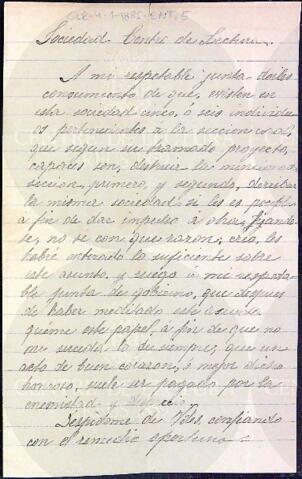 Sociedad Centro de Lectura.
A mi respetable junta doiles
conocimiento de que, existen en
esta sociedad cinco, ó seis individu
os pertenecientes a la seccion coral,
que segun su tramado proyecto,
capaces son, destruir la mencionada
seccion, primero, y segundo, derribar
la misma sociedad si les es posible
a fin de dar impulso á otra, fijando
se, no se con que razon; creo, les
habre enterado lo suficiente sobre
este asunto, y ruego á mi respeta
ble junta de gobierno, que despues
de haber meditado este asunto
quéme este papel, á fin de que no
me suceda lo de siempre, que un
acto de buen corazon, ó mejor dicho
honroso, suele ser pagado por la
enemistad y
Despidome de Vdes, confiando
con el remedio oportuno.